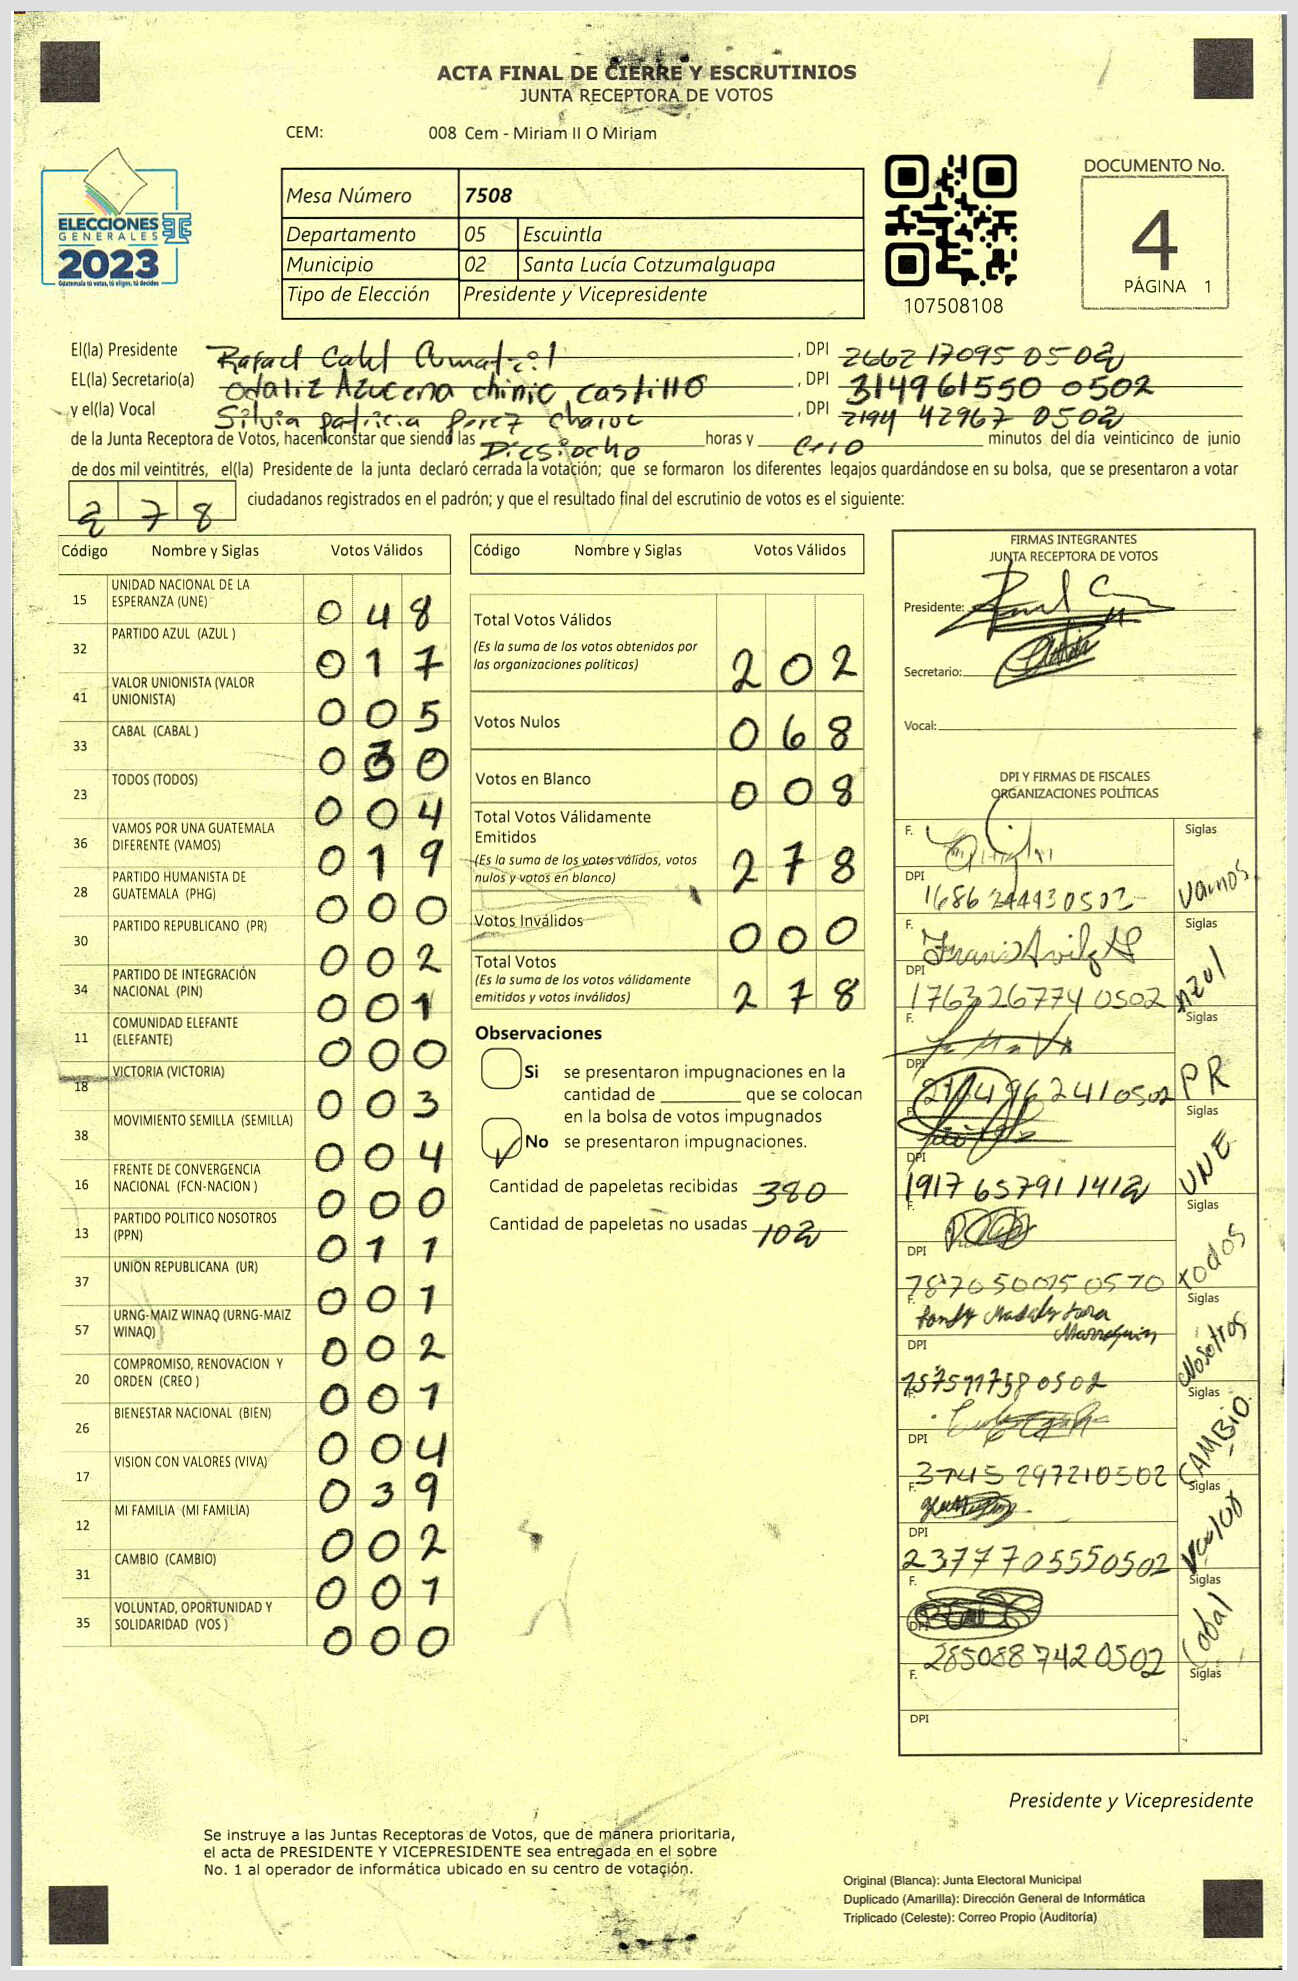 ACTA FINAL DE CIERRE Y ESCRUTINIOS
JUNTA RECEPTORA DE VOTOS
CEM: 008 Cem - Miriam II O Miriam
ELECCIONES
GENERALES
2023
Guatemala tú votas, tú eliges, tú decides
TSE
Mesa Número 7508
Departamento 05 Escuintla
Municipio 02 Santa Lucía Cotzumalguapa
Tipo de Elección Presidente y Vicepresidente
107508108
DOCUMENTO No.
4
PÁGINA 1
El(la) Presidente Rafael , DPI 2662 17095 0502
EL(la) Secretario(a) Odaliz Azucena chinic castillo , DPI 314961550 0502
y el(la) Vocal Silvia patricia perez , DPI 2194 42967 0502
de la Junta Receptora de Votos, hacen constar que siendo las Diesiocho horas y cero minutos del día veinticinco de junio
de dos mil veintitrés, el(la) Presidente de la junta declaró cerrada la votación; que se formaron los diferentes legajos quardándose en su bolsa, que se presentaron a votar
278 ciudadanos registrados en el padrón; y que el resultado final del escrutinio de votos es el siguiente:
Código Nombre y Siglas Votos Válidos
15 UNIDAD NACIONAL DE LA ESPERANZA (UNE) 048
32 PARTIDO AZUL (AZUL ) 017
41 VALOR UNIONISTA (VALOR UNIONISTA) 005
33 CABAL (CABAL ) 030
23 TODOS (TODOS) 004
36 VAMOS POR UNA GUATEMALA DIFERENTE (VAMOS) 019
28 PARTIDO HUMANISTA DE GUATEMALA (PHG) 000
30 PARTIDO REPUBLICANO (PR) 002
34 PARTIDO DE INTEGRACIÓN NACIONAL (PIN) 001
11 COMUNIDAD ELEFANTE (ELEFANTE) 000
18 VICTORIA (VICTORIA) 003
38 MOVIMIENTO SEMILLA (SEMILLA) 004
16 FRENTE DE CONVERGENCIA NACIONAL (FCN-NACION ) 000
13 PARTIDO POLITICO NOSOTROS (PPN) 011
37 UNION REPUBLICANA (UR) 001
57 URNG-MAIZ WINAQ (URNG-MAIZ WINAQ) 002
20 COMPROMISO, RENOVACION Y ORDEN (CREO ) 001
26 BIENESTAR NACIONAL (BIEN) 004
17 VISION CON VALORES (VIVA) 039
12 MI FAMILIA (MI FAMILIA) 002
31 CAMBIO (CAMBIO) 001
35 VOLUNTAD, OPORTUNIDAD Y SOLIDARIDAD (VOS ) 000
Código Nombre y Siglas Votos Válidos
Total Votos Válidos
(Es la suma de los votos obtenidos por
las organizaciones políticas) 202
Votos Nulos 068
Votos en Blanco 008
Total Votos Válidamente
Emitidos
(Es la suma de los votos válidos, votos
nulos y votos en blanco) 278
Votos Inválidos 000
Total Votos
(Es la suma de los votos válidamente
emitidos y votos inválidos) 278
Observaciones
Si se presentaron impugnaciones en la
cantidad de ________ que se colocan
en la bolsa de votos impugnados
No se presentaron impugnaciones.
Cantidad de papeletas recibidas 380
Cantidad de papeletas no usadas 102
FIRMAS INTEGRANTES
JUNTA RECEPTORA DE VOTOS
Presidente:
Secretario:
Vocal:
DPI Y FIRMAS DE FISCALES
ORGANIZACIONES POLÍTICAS
F. Siglas
DPI 1686 244930502 Vamos
F. Siglas
DPI 1763267740502 AZUl
F. Siglas
DPI 0502 PR
F. Siglas
DPI 1917 65791 1412 UNE
F. Siglas
DPI Todos
F. Siglas
DPI Nosotros
F. Siglas
DPI 3745 297210502 CAMBIO
F. Siglas
DPI 2377705550502
F. Siglas
DPI 2850887420502 Cabal
F. Siglas
DPI
Presidente y Vicepresidente
Se instruye a las Juntas Receptoras de Votos, que de manera prioritaria,
el acta de PRESIDENTE Y VICEPRESIDENTE sea entregada en el sobre
No. 1 al operador de informática ubicado en su centro de votación.
Original (Blanca): Junta Electoral Municipal
Duplicado (Amarilla): Dirección General de Informática
Triplicado (Celeste): Correo Propio (Auditoría)